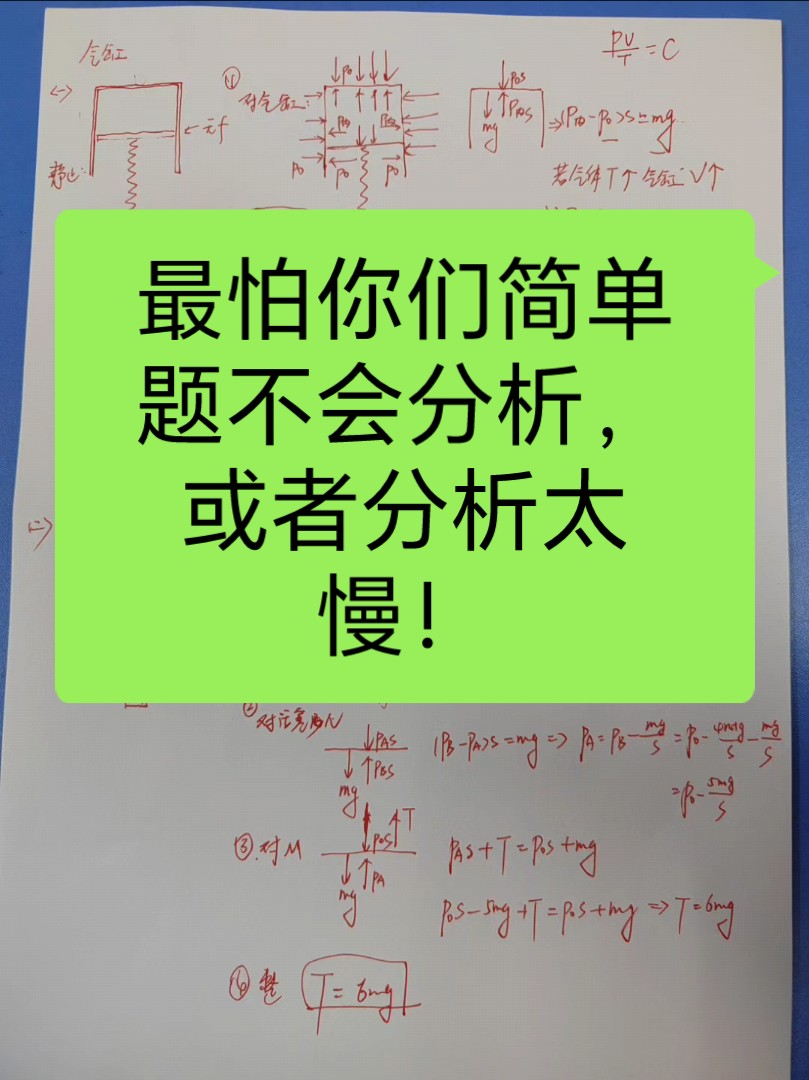 气缸
PV/T = C
①
对气缸:
p₀
p₀s
mg
⇒(P内-p₀)s=mg
无f
静止:
p₀ p₀ p₀
若气体T↑ 气缸:V↑
最怕你们简单
题不会分析，
或者分析太
慢！
②
对活塞
pAs
pBs
mg
(pB-pA)s=mg ⇒ pA=pB-mg/s=p₀-4mg/s-mg/s
=p₀-5mg/s
③.对M
p₀s
T
pA
mg
pAs+T=p₀s+mg
p₀s-5mg+T=p₀s+mg ⇒ T=6mg
整
T=6mg